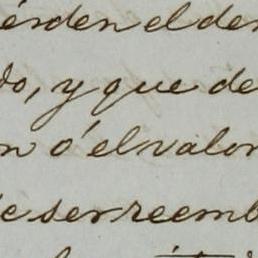 érden el der
do, y que de
n ó el valor
e ser reemb